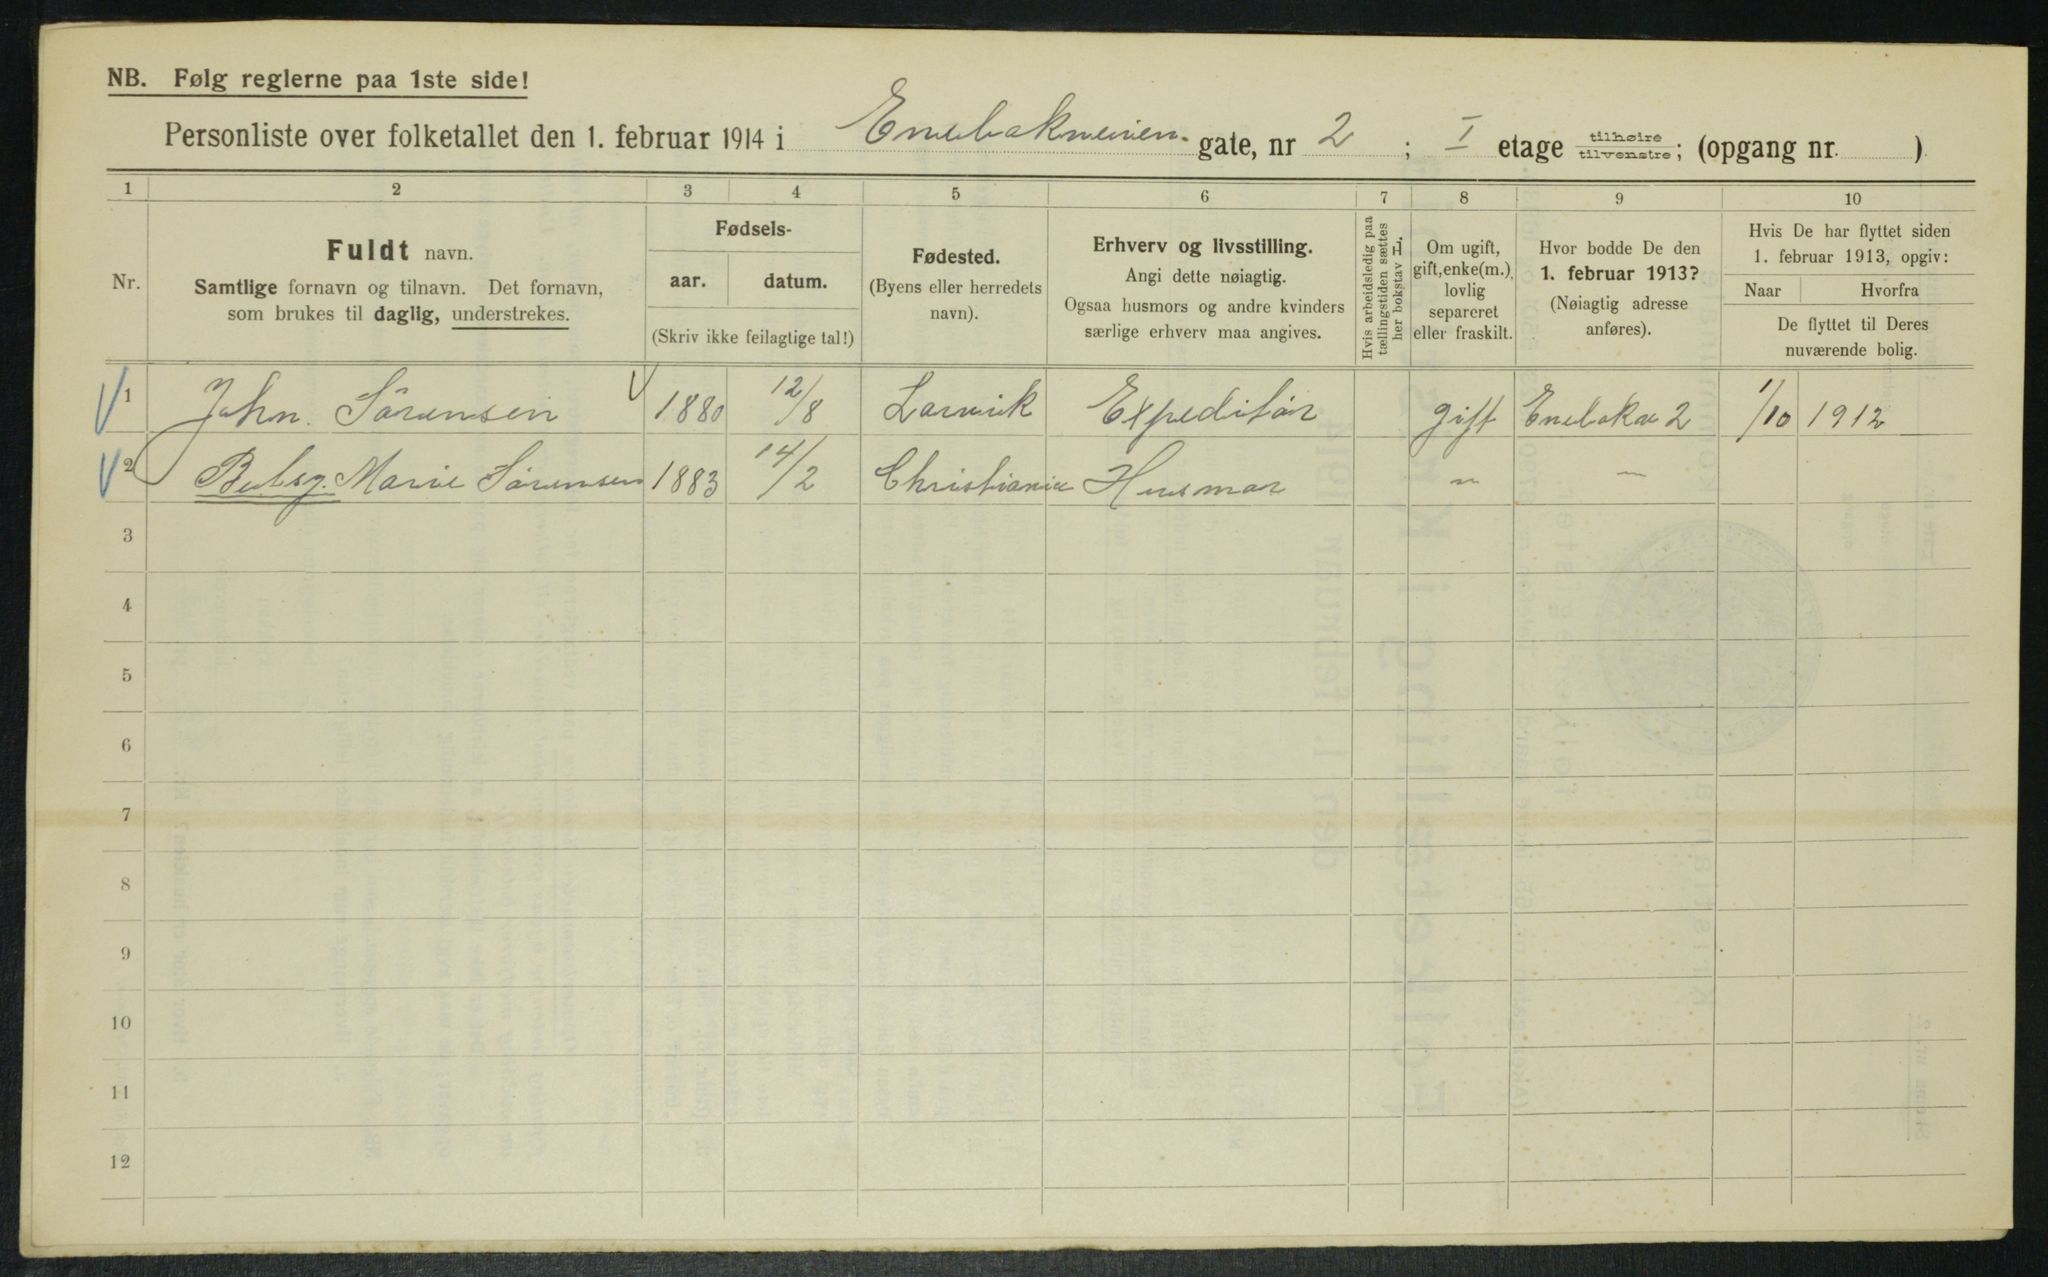 NB. Følg reglerne paa 1ste side!
Personliste over folketallet den 1. februar 1914 i Enebakveien gate, nr 2 ; I etage tilhøire/tilvenstre; (opgang nr. )
1 2 3 4 5 6 7 8 9 10
Nr.
Fuldt navn.
Samtlige fornavn og tilnavn. Det fornavn,
som brukes til daglig, understrekes.
Fødsels-
aar. datum.
(Skriv ikke feilagtige tal!)
Fødested.
(Byens eller herredets
navn).
Erhverv og livsstilling.
Angi dette nøiagtig.
Ogsaa husmors og andre kvinders
særlige erhverv maa angives.
Hvis arbeidsledig paa
tællingstiden sættes
her bokstav L
Om ugift,
gift, enke(m.),
lovlig
separeret
eller fraskilt.
Hvor bodde De den
1. februar 1913?
(Nøiagtig adresse
anføres).
Hvis De har flyttet siden
1. februar 1913, opgiv:
Naar Hvorfra
De flyttet til Deres
nuværende bolig.
1 John Sörensen 1880 12/8 Larvik Expeditør gift Enebakv 2 1/10 1912
2 Marie Sörensen 1883 14/2 Christiania Husmor " "
3
4
5
6
7
8
9
10
11
12